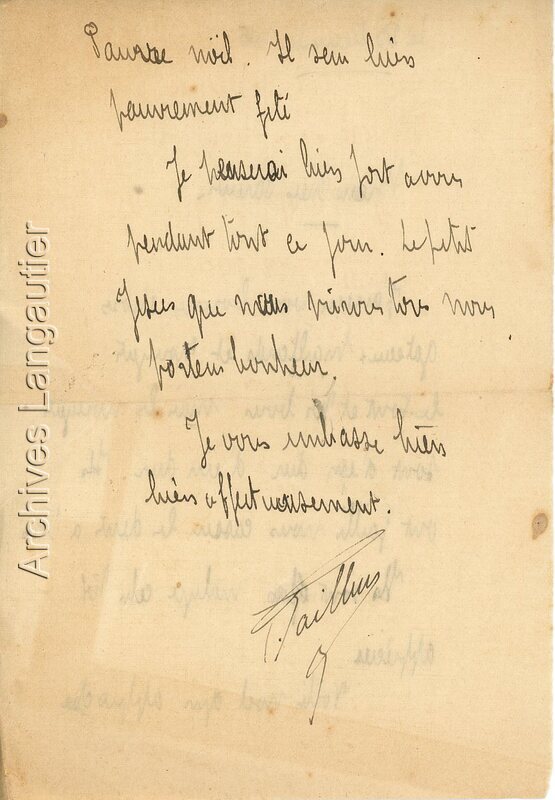 Pauvre nöil. Il sera bien
pauvrement fêté
Je penserai bien fort a vous
pendant tout ce jour. Le petit
Jesus que nous prions tous nous
portera bonheur.
Je vous embrasse bien
bien affectueusement.
Archives Langautier